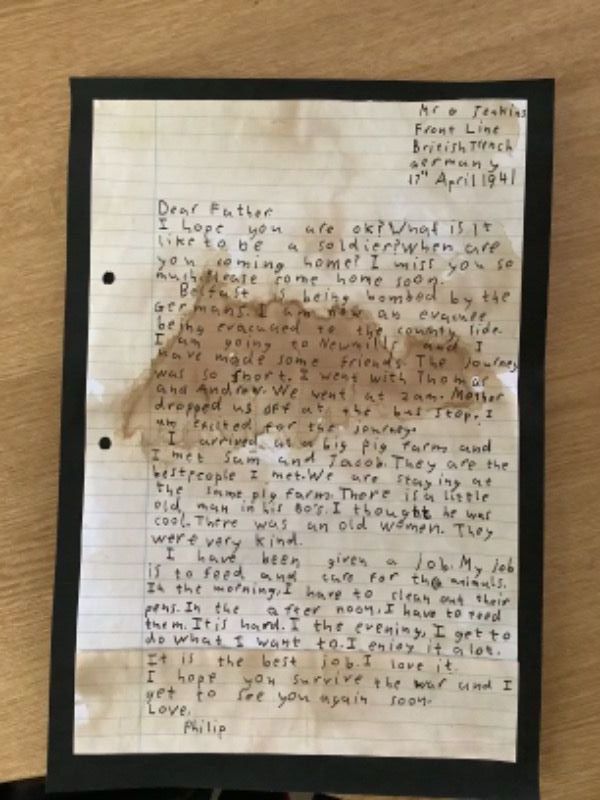 Mr G Jenkins
Front Line
British Trench
Germany
17th April 1941
Dear Father
I hope you are ok? What is it
like to be a soldier? When are
you coming home? I miss you so
much. Please come home soon.
Belfast is being bombed by the
Germans. I am now an evacuee
being evacuated to the county side.
I am going to Newmills and I
have made some friends. The journey
was so short. I went with Thomas
and Andrew. We went at 2am. Mother
dropped us off at the bus stop. I
am excited for the journey.
I arrived at a big pig farm and
I met Sam and Jacob. They are the
best people I met. We are staying at
the same pig farm. There is a little
old man in his 80's. I thought he was
cool. There was an old women. They
were very kind.
I have been given a job. My job
is to feed and care for the animals.
In the morning, I have to clean out their
pens. In the after noon, I have to feed
them. It is hard. I the evening, I get to
do what I want to. I enjoy it alot.
It is the best job. I love it.
I hope you survive the war and I
get to see you again soon.
Love.
Philip